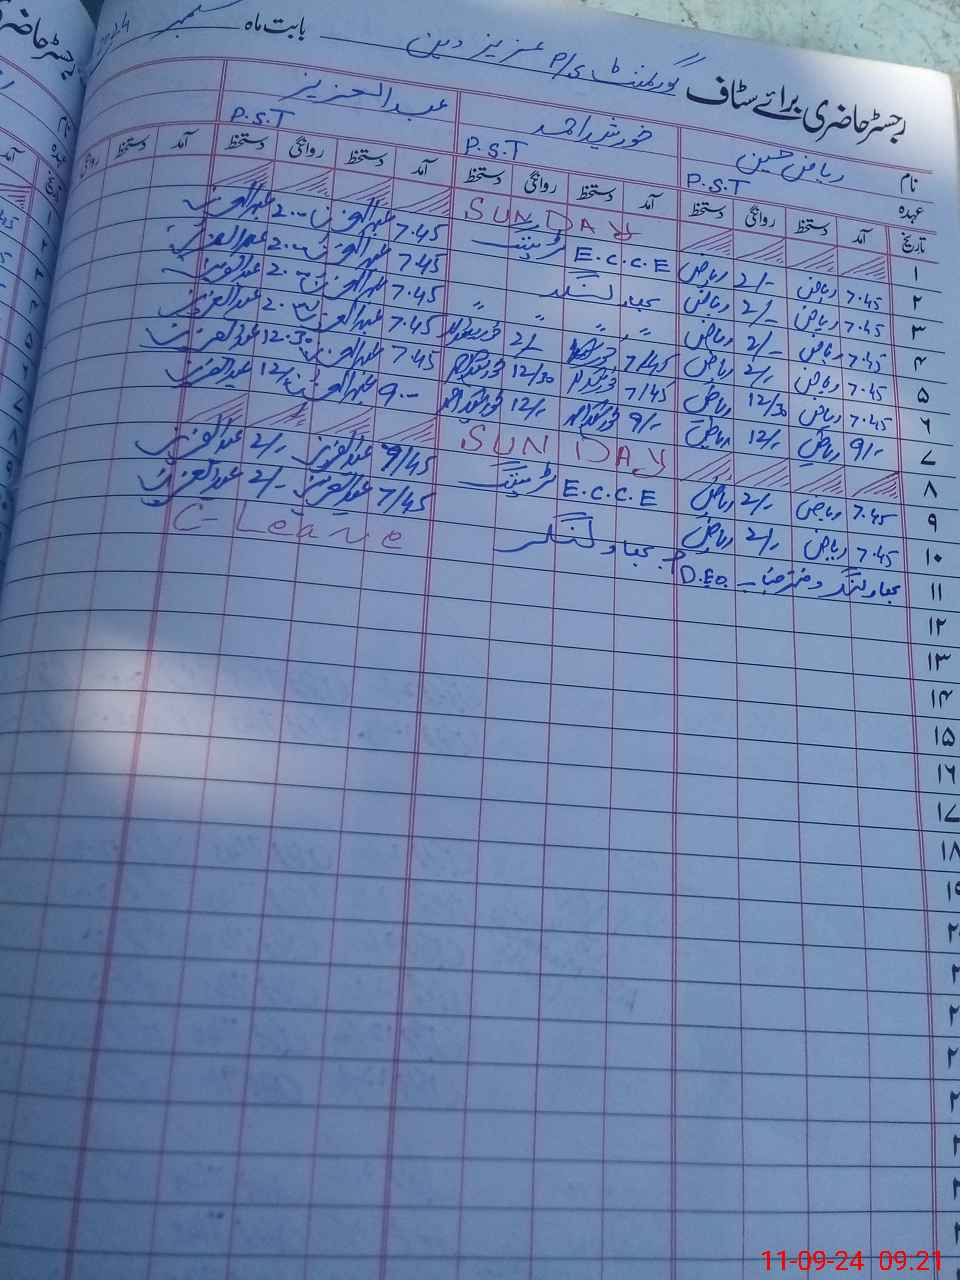 رجسٹر حاضری برائے سٹاف گورنمنٹ P/ی عزیز دین بابت ماہ ستمبر
نام ریاض حسین خورشید احمد عبدالعزیز
عہدہ P.S.T P.S.T P.S.T
تاریخ آمد دستخط روانگی دستخط آمد دستخط روانگی دستخط آمد دستخط روانگی دستخط آمد دستخط روانگی
۱ SUNDAY
۲ 7.45 ریاض 2/- ریاض E.C.C.E ٹریننگ 7.45 عبدالعزیز 2.00 عبدالعزیز
۳ 7.45 ریاض 2/- ریاض بہاولنگر 7.45 عبدالعزیز 2.00 عبدالعزیز
۴ 7.45 ریاض 2/- ریاض " " " " 7.45 عبدالعزیز 2.00 عبدالعزیز
۵ 7.45 ریاض 2/- ریاض 7/45 خورشید احمد 2/- خورشید احمد 7.45 عبدالعزیز 2.00 عبدالعزیز
۶ 7.45 ریاض 12/30 ریاض 7/45 خورشید احمد 12/30 خورشید احمد 7.45 عبدالعزیز 12.30 عبدالعزیز
۷ 9/- ریاض 12/- ریاض 9/- خورشید احمد 12/- خورشید احمد 9.00 عبدالعزیز 12/- عبدالعزیز
۸ SUNDAY
۹ 7.45 ریاض 2/- ریاض E.C.C.E ٹریننگ 7/45 عبدالعزیز 2/- عبدالعزیز
۱۰ 7.45 ریاض 2/- ریاض بہاولنگر 7/45 عبدالعزیز 2/- عبدالعزیز
۱۱ بہاولنگر دفتر جناب D.E.O. C-Leave
۱۲
۱۳
۱۴
۱۵
۱۶
۱۷
۱۸
11-09-24 09.21